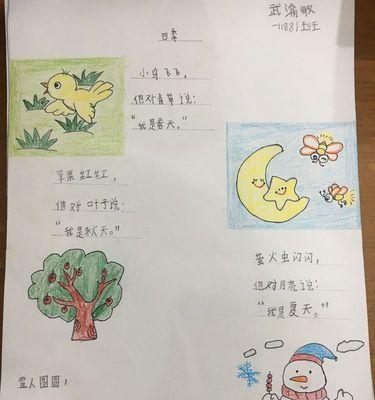 武渝敏
一1(88)班
四季
小鸟飞飞，
他对青草说：
“我是春天。”
苹果红红，
他对叶子说：
“我是秋天。”
萤火虫闪闪，
他对月亮说：
“我是夏天。”
雪人圆圆，